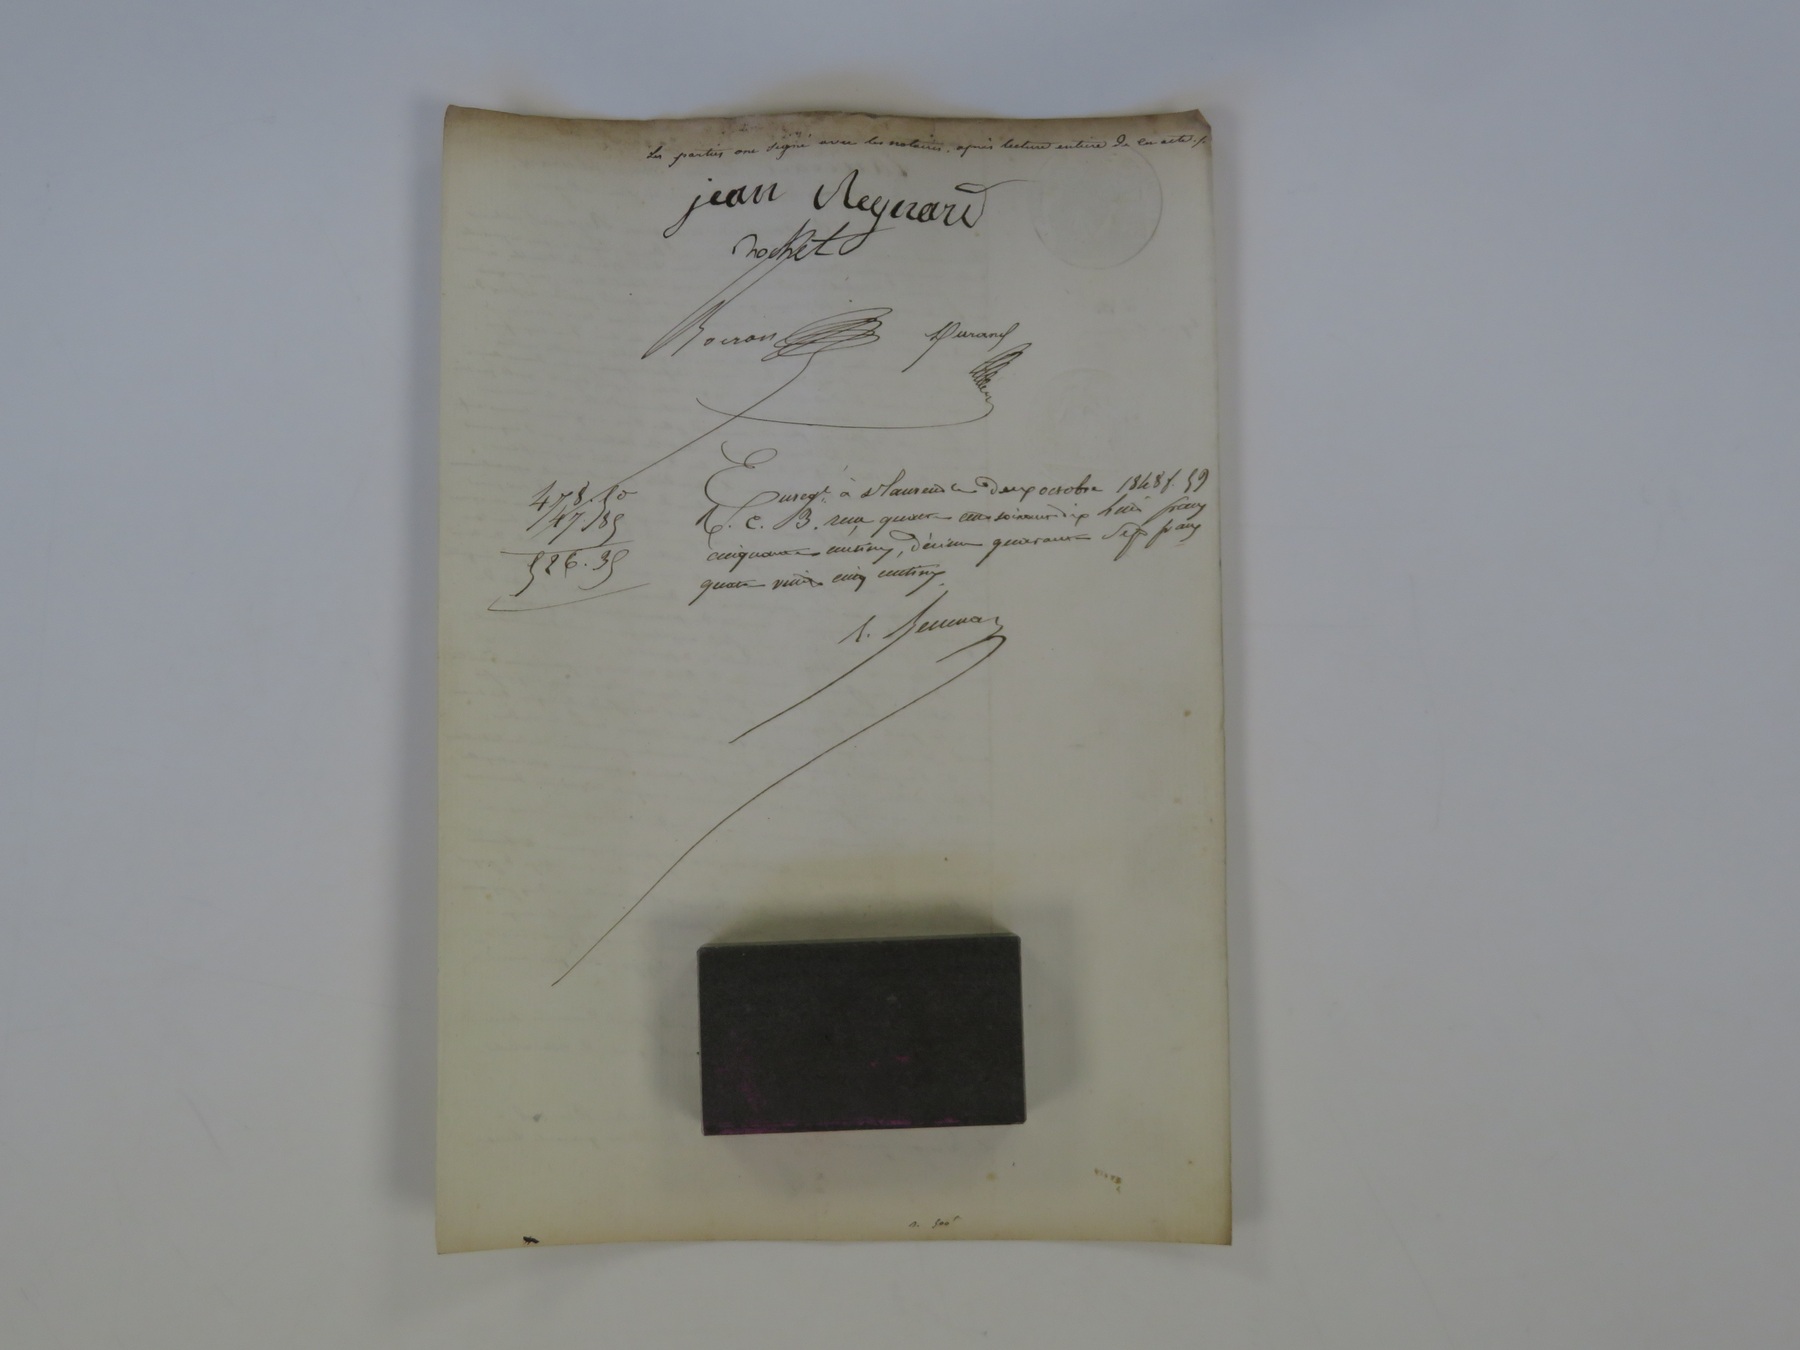 Les parties ont signé avec les notaires, après lecture entière de cet acte ./.
jean Reynard
Rochet
Bocron Durand
478.50
47.85
526.35
Enregt. à St Laurent le deux octobre 1848 f. 59
R. C. B. reçu quatre cent soixante dix huit francs
cinquante centimes, décime quarante sept francs
quatre vingt cinq centimes.